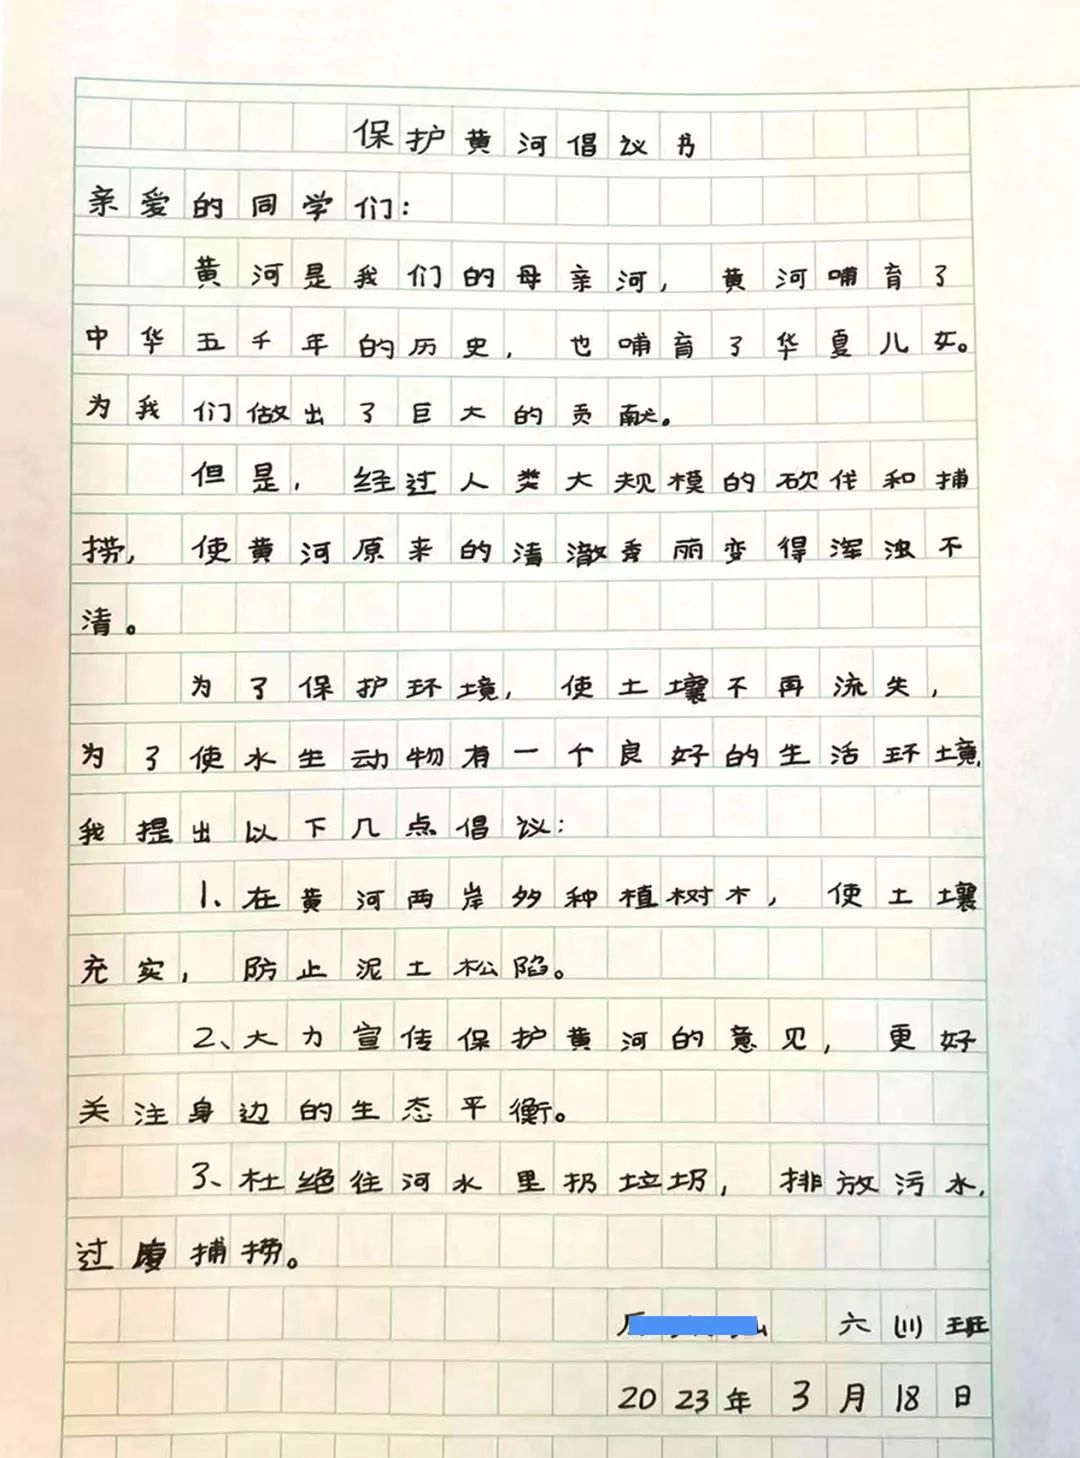 保护黄河倡议书
亲爱的同学们：
黄河是我们的母亲河，黄河哺育了
中华五千年的历史，也哺育了华夏儿女。
为我们做出了巨大的贡献。
但是，经过人类大规模的砍伐和捕
捞，使黄河原来的清澈秀丽变得浑浊不
清。
为了保护环境，使土壤不再流失，
为了使水生动物有一个良好的生活环境，
我提出以下几点倡议：
1、在黄河两岸多种植树木，使土壤
充实，防止泥土松陷。
2、大力宣传保护黄河的意见，更好
关注身边的生态平衡。
3、杜绝往河水里扔垃圾，排放污水，
过度捕捞。
六(1)班
2023年3月18日